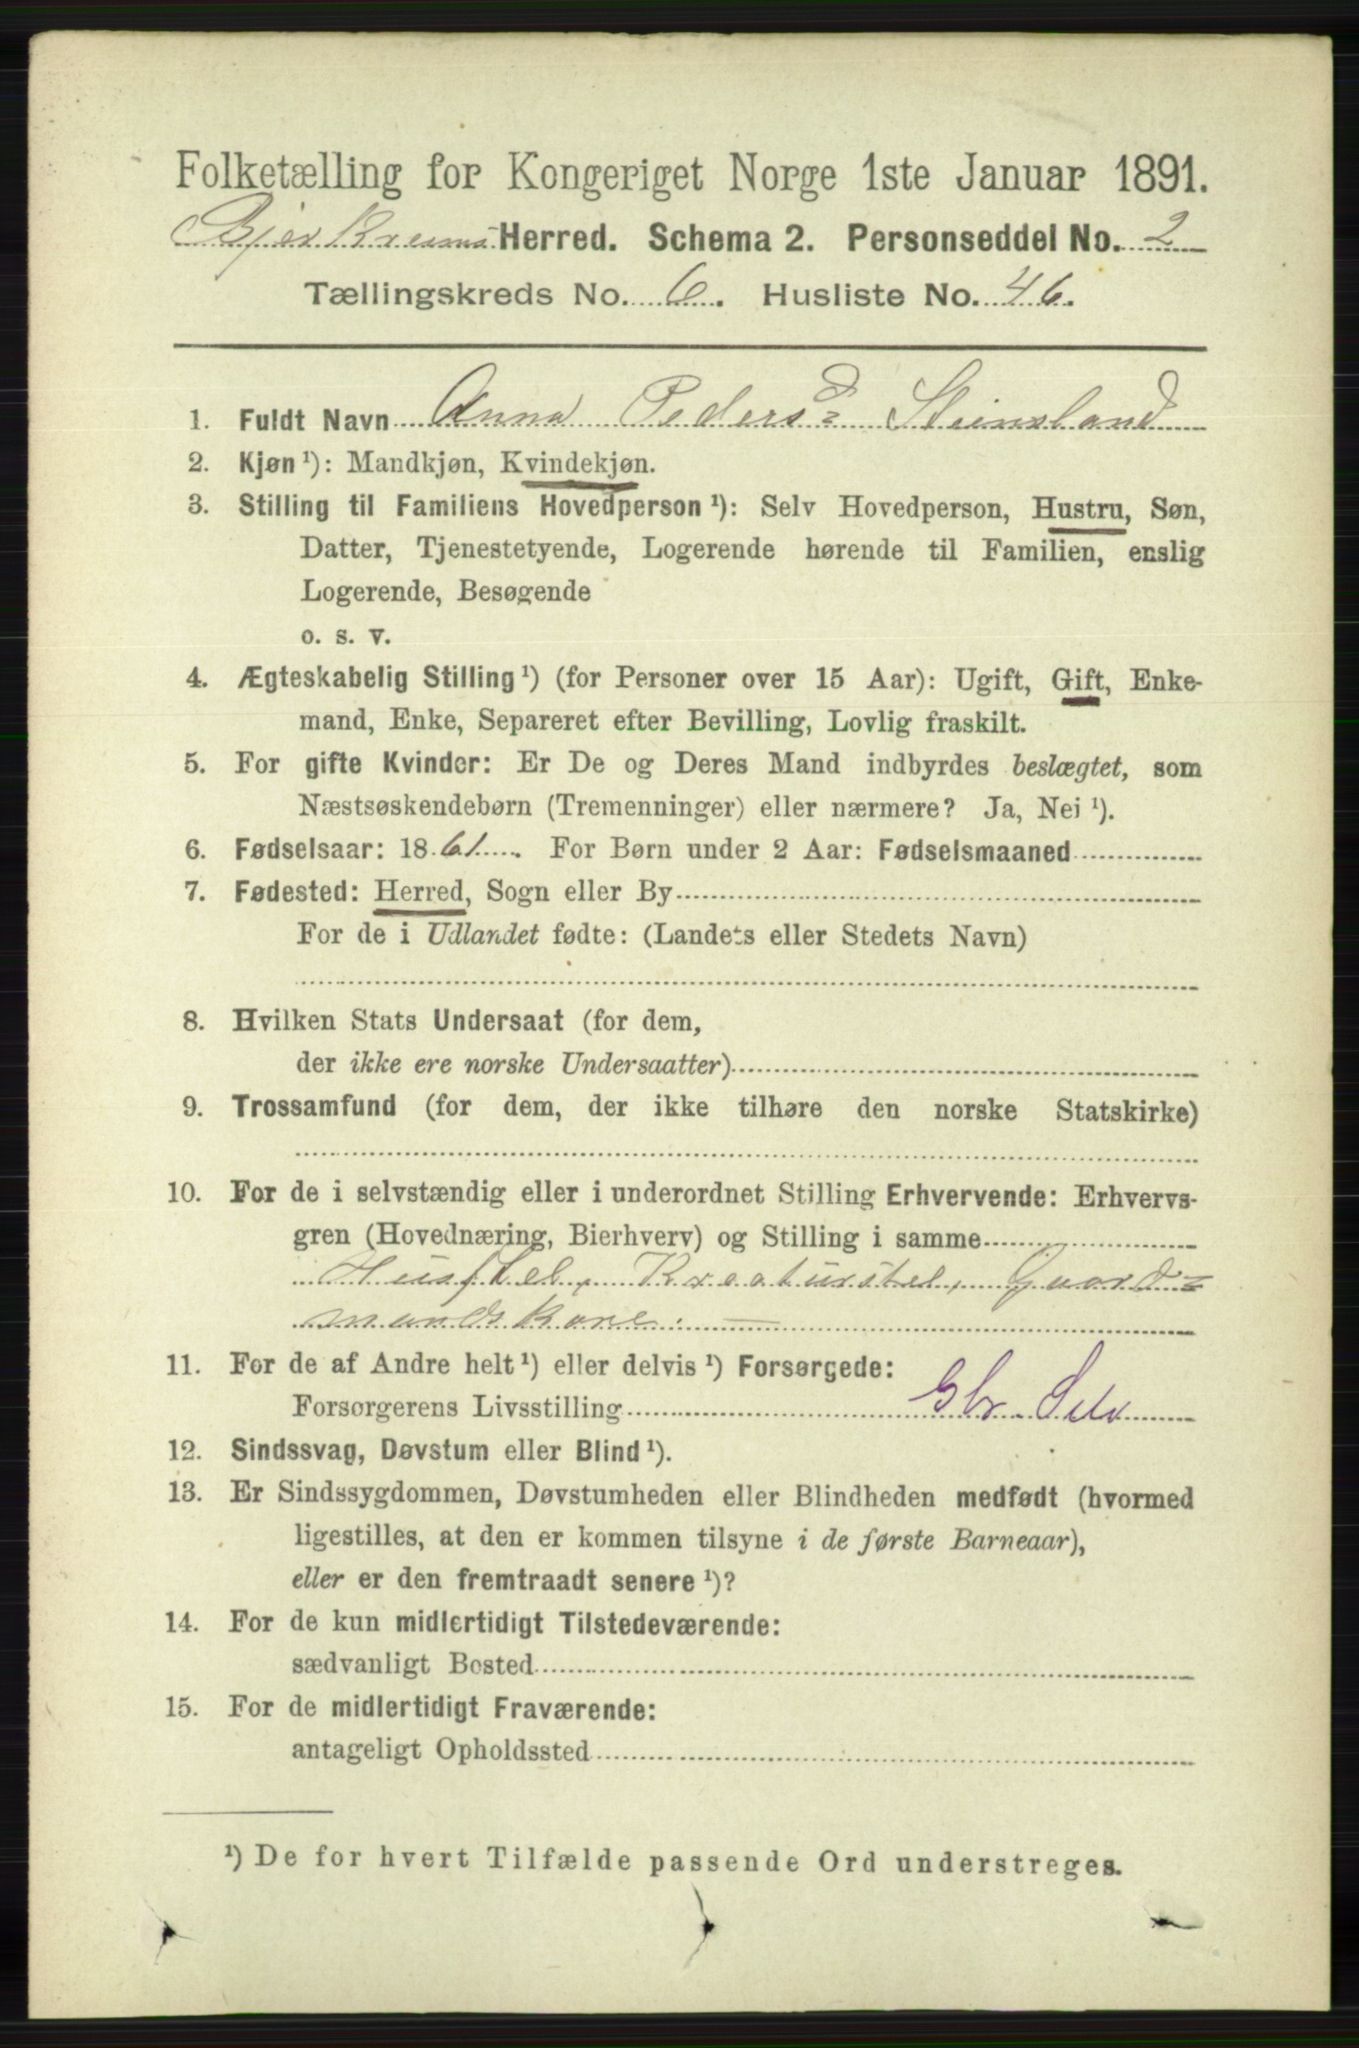 Folketælling for Kongeriget Norge 1ste Januar 1891.
Bjerkreims Herred. Schema 2. Personseddel No. 2
Tællingskreds No. 6. Husliste No. 46.
1. Fuldt Navn Anna Pedersd= Steinsland
2. Kjøn ¹): Mandkjøn, Kvindekjøn.
3. Stilling til Familiens Hovedperson ¹): Selv Hovedperson, Hustru, Søn,
Datter, Tjenestetyende, Logerende hørende til Familien, enslig
Logerende, Besøgende
o. s. v.
4. Ægteskabelig Stilling ¹) (for Personer over 15 Aar): Ugift, Gift, Enke-
mand, Enke, Separeret efter Bevilling, Lovlig fraskilt.
5. For gifte Kvinder: Er De og Deres Mand indbyrdes beslægtet, som
Næstsøskendebørn (Tremenninger) eller nærmere? Ja, Nei ¹).
6. Fødselsaar: 1861. For Børn under 2 Aar: Fødselsmaaned
7. Fødested: Herred, Sogn eller By
For de i Udlandet fødte: (Landets eller Stedets Navn)
8. Hvilken Stats Undersaat (for dem,
der ikke ere norske Undersaatter)
9. Trossamfund (for dem, der ikke tilhøre den norske Statskirke)
10. For de i selvstændig eller i underordnet Stilling Erhvervende: Erhvervs-
gren (Hovednæring, Bierhverv) og Stilling i samme
Husstel, Kreaturstel, Gaard=
mandskone. —
11. For de af Andre helt ¹) eller delvis ¹) Forsørgede:
Forsørgerens Livsstilling Gbr. Selv
12. Sindssvag, Døvstum eller Blind ¹).
13. Er Sindssygdommen, Døvstumheden eller Blindheden medfødt (hvormed
ligestilles, at den er kommen tilsyne i de første Barneaar),
eller er den fremtraadt senere ¹)?
14. For de kun midlertidigt Tilstedeværende:
sædvanligt Bosted
15. For de midlertidigt Fraværende:
antageligt Opholdssted
¹) De for hvert Tilfælde passende Ord understreges.